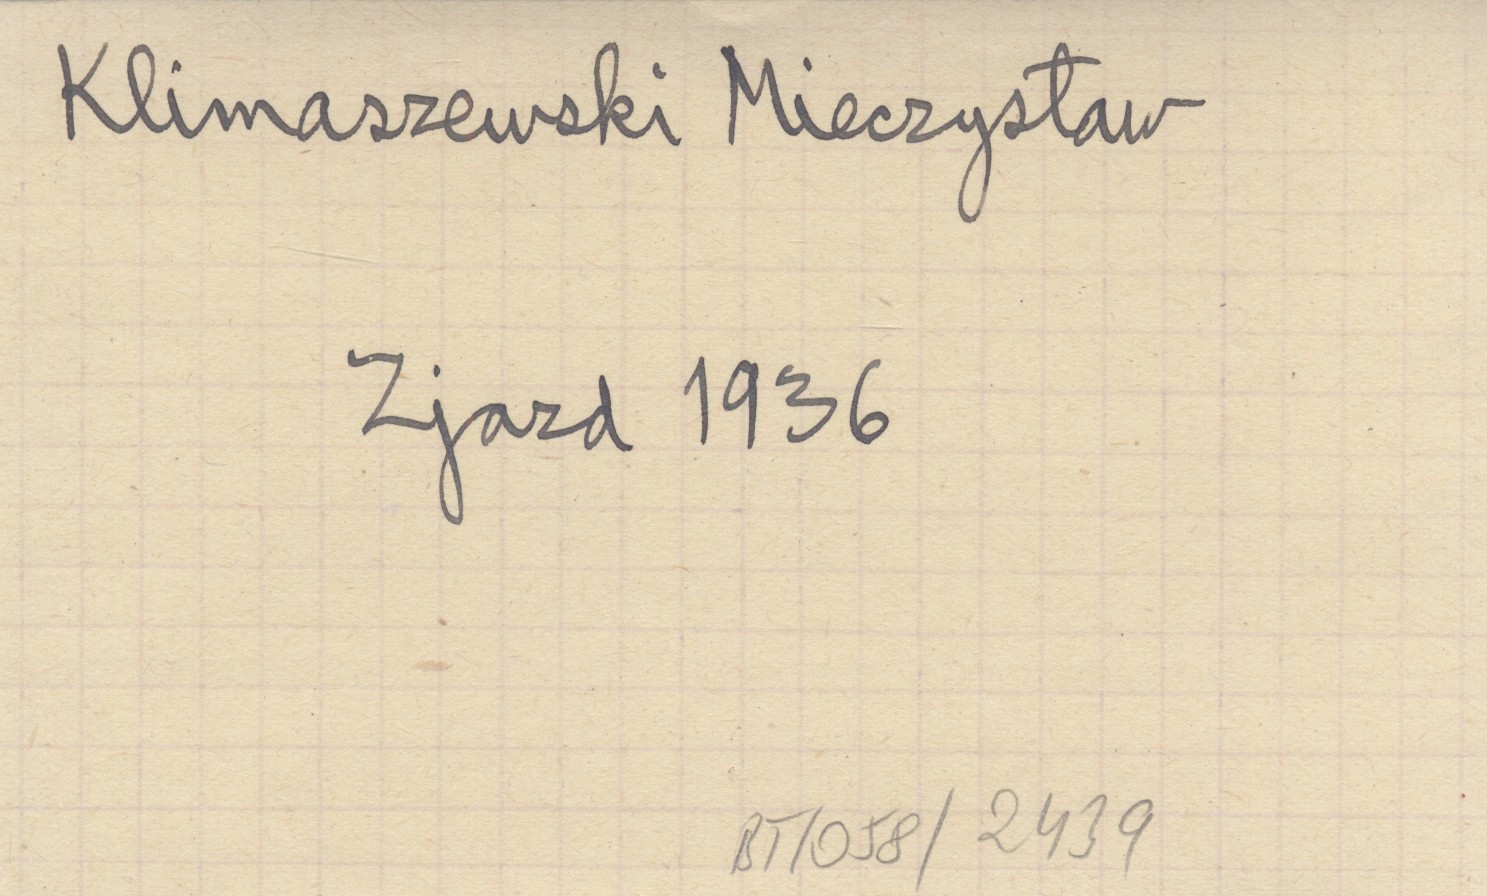 Klimaszewski Mieczysław
Zjazd 1936
BT/058/2439